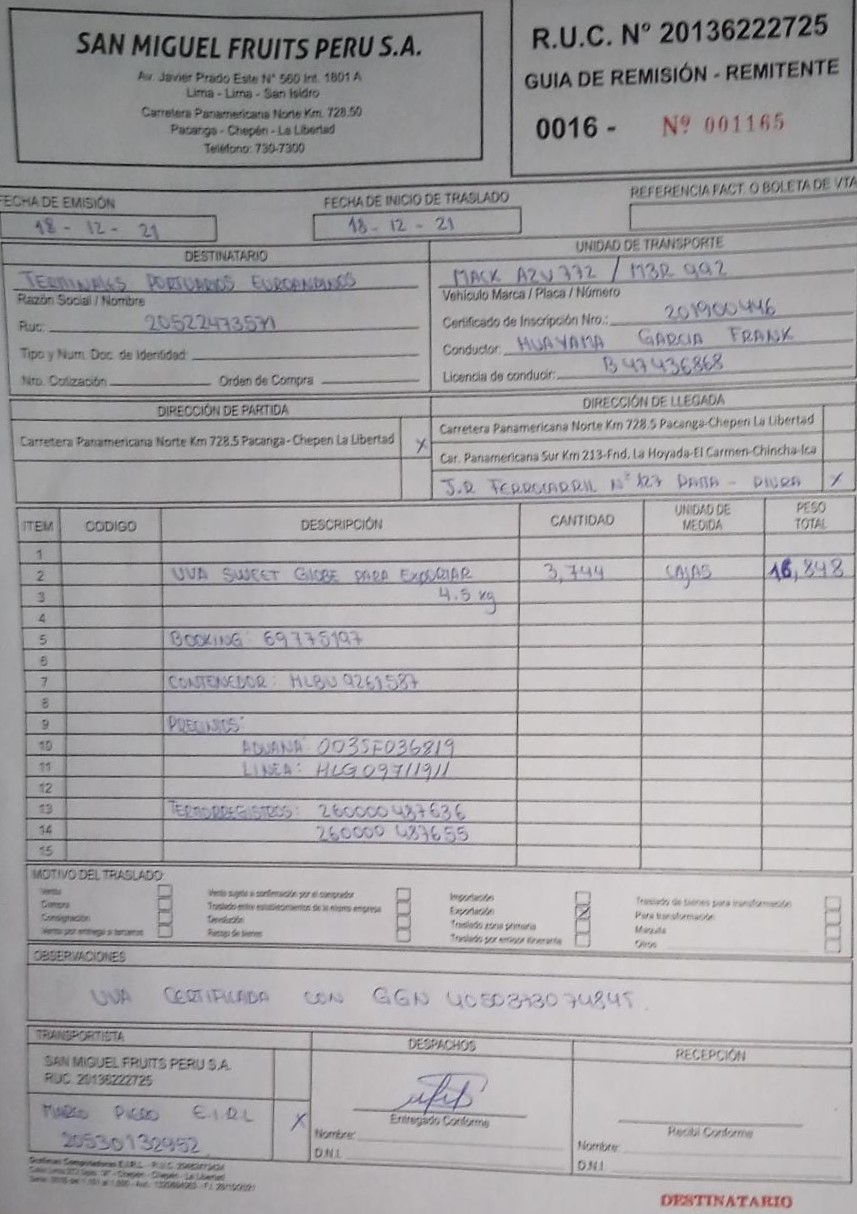 SAN MIGUEL FRUITS PERU S.A.
Av. Javier Prado Este N° 560 Int. 1801 A
Lima - Lima - San Isidro
Carretera Panamericana Norte Km. 728.50
Pacanga - Chepén - La Libertad
Teléfono: 730-7300
R.U.C. N° 20136222725
GUIA DE REMISIÓN - REMITENTE
0016 - Nº 001165
FECHA DE EMISIÓN
18 - 12 - 21
FECHA DE INICIO DE TRASLADO
18 - 12 - 21
REFERENCIA FACT. O BOLETA DE VTA
DESTINATARIO
TERMINALES PORTUARIOS EUROANDINOS
Razón Social / Nombre
Ruc: 20522473571
Tipo y Num. Doc. de Identidad:
Nro. Cotización Orden de Compra
UNIDAD DE TRANSPORTE
MACK AZV772 / M3R 992
Vehículo Marca / Placa / Número
Certificado de Inscripción Nro.: 201900446
Conductor: HUAYAMA GARCIA FRANK
Licencia de conducir: B 47436868
DIRECCIÓN DE PARTIDA
Carretera Panamericana Norte Km 728.5 Pacanga-Chepen La Libertad X
DIRECCIÓN DE LLEGADA
Carretera Panamericana Norte Km 728.5 Pacanga-Chepen La Libertad
Car. Panamericana Sur Km 213-Fnd. La Hoyada-El Carmen-Chincha-Ica
J.R FERROCARRIL N° 127 PAITA - PIURA X
ITEM CODIGO DESCRIPCIÓN CANTIDAD UNIDAD DE MEDIDA PESO TOTAL
1
2 UVA SWEET GLOBE PARA EXPORTAR 3,744 CAJAS 16,848
3 4.5 kg
4
5 BOOKING: 69775197
6
7 CONTENEDOR: HLBU 9261587
8
9 PRECINTOS:
10 ADUANA: 0035F036819
11 LINEA: HLG09711911
12
13 TERMORREGISTROS: 260000487636
14 260000 487655
15
MOTIVO DEL TRASLADO:
Venta
Compra
Consignación
Venta por entrega a terceros
Venta sujeta a confirmación por el comprador
Traslado entre establecimientos de la misma empresa
Devolución
Recojo de bienes
Importación
Exportación X
Traslado zona primaria
Traslado por emisor itinerante
Traslado de bienes para transformación
Para transformación
Maquila
Otros
OBSERVACIONES
UVA CERTIFICADA CON GGN 4050373074845.
TRANSPORTISTA
SAN MIGUEL FRUITS PERU S.A.
RUC. 20136222725
MARCO PIERO E.I.R.L X
20530132952
DESPACHOS
Entregado Conforme
Nombre:
D.N.I.
RECEPCIÓN
Recibí Conforme
Nombre:
D.N.I.
DESTINATARIO